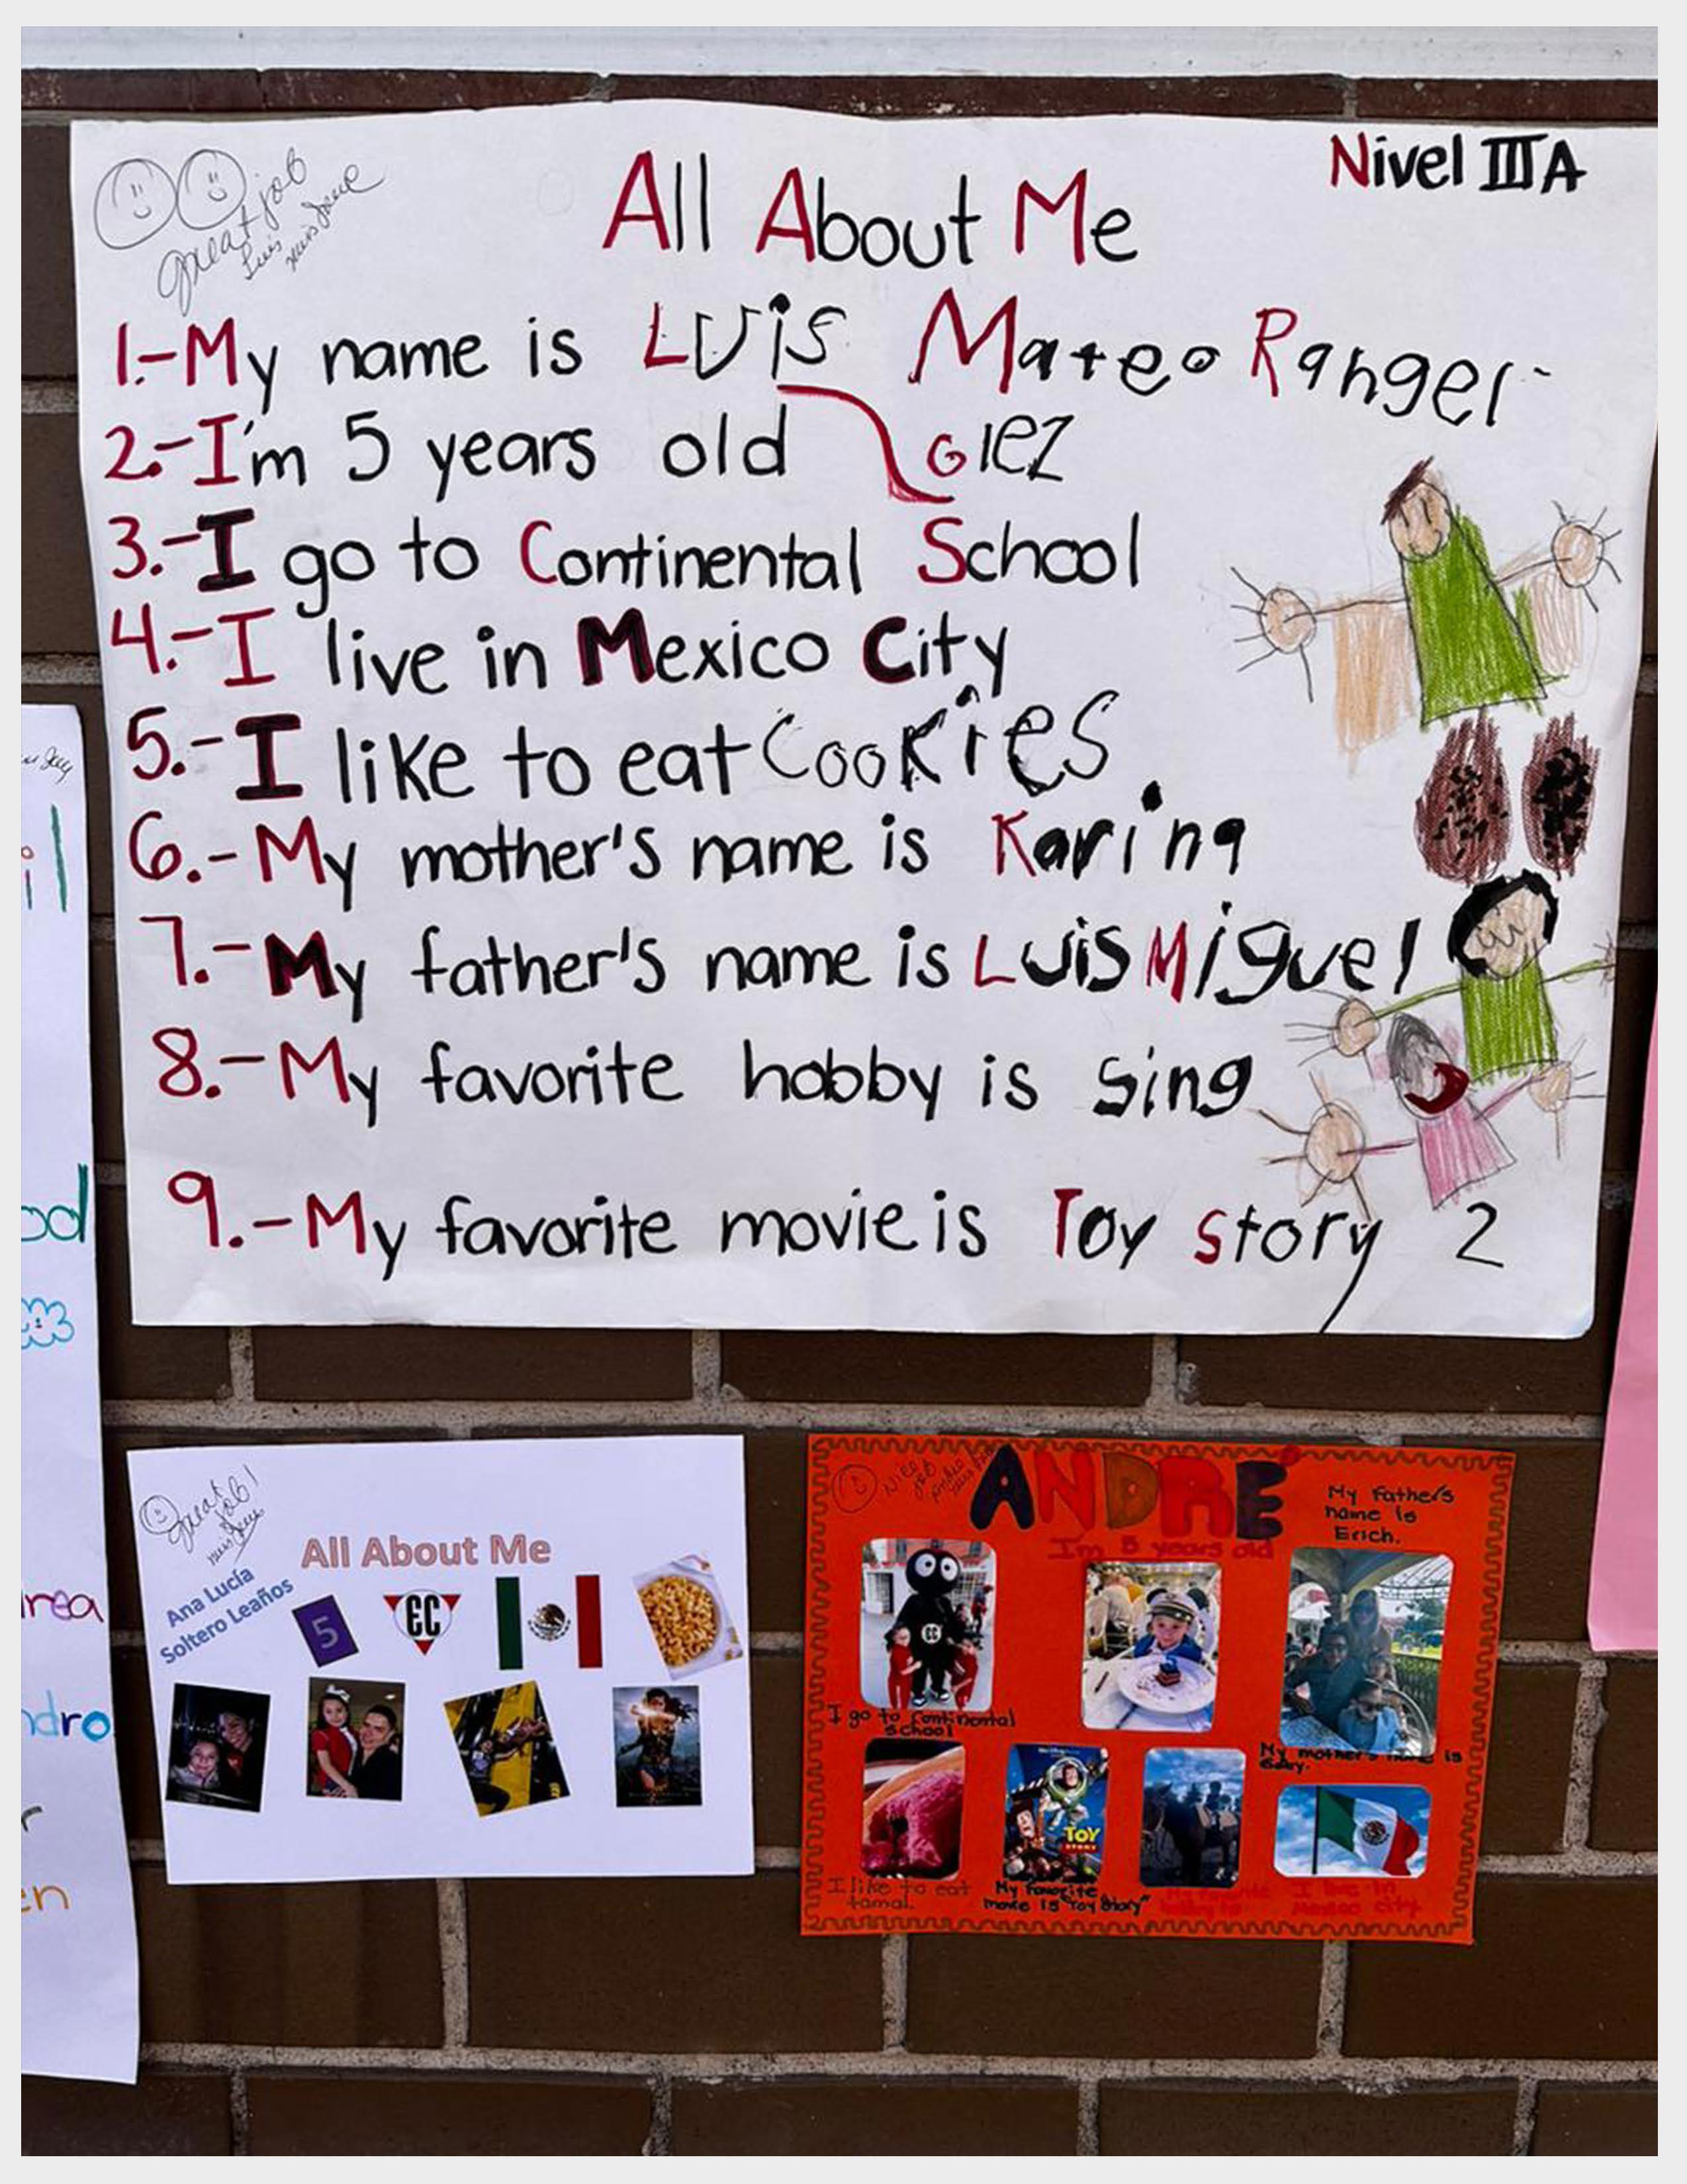 great job
Luis
miss Jane
All About Me
Nivel III A
1.-My name is Luis Mateo Rangel-
2.-I'm 5 years old Glez
3.-I go to Continental School
4.-I live in Mexico City
5.-I like to eat Cookies.
6.-My mother's name is Karina
7.-My father's name is Luis Miguel
8.-My favorite hobby is sing
9.-My favorite movie is Toy Story 2
il
od
rea
ndro
r
en
Great
job!
miss Jane
All About Me
Ana Lucía
Soltero Leaños
5
EC
Nice
job
ANDRÉ
I'm 5 years old
My Father's
name is
Erich.
EC
I go to Continental
School
My mother's name is
Gaby.
TOY
STORY
I like to eat
tamal.
My favorite
movie is "Toy Story"
My favorite
hobby is
I live in
Mexico City